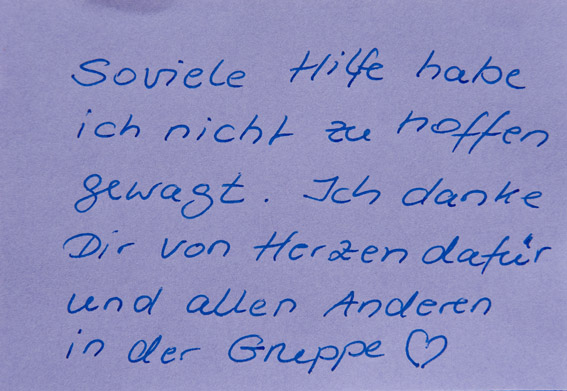 Soviele Hilfe habe
ich nicht zu hoffen
gewagt. Ich danke
Dir von Herzen dafür
und allen Anderen
in der Gruppe ♡